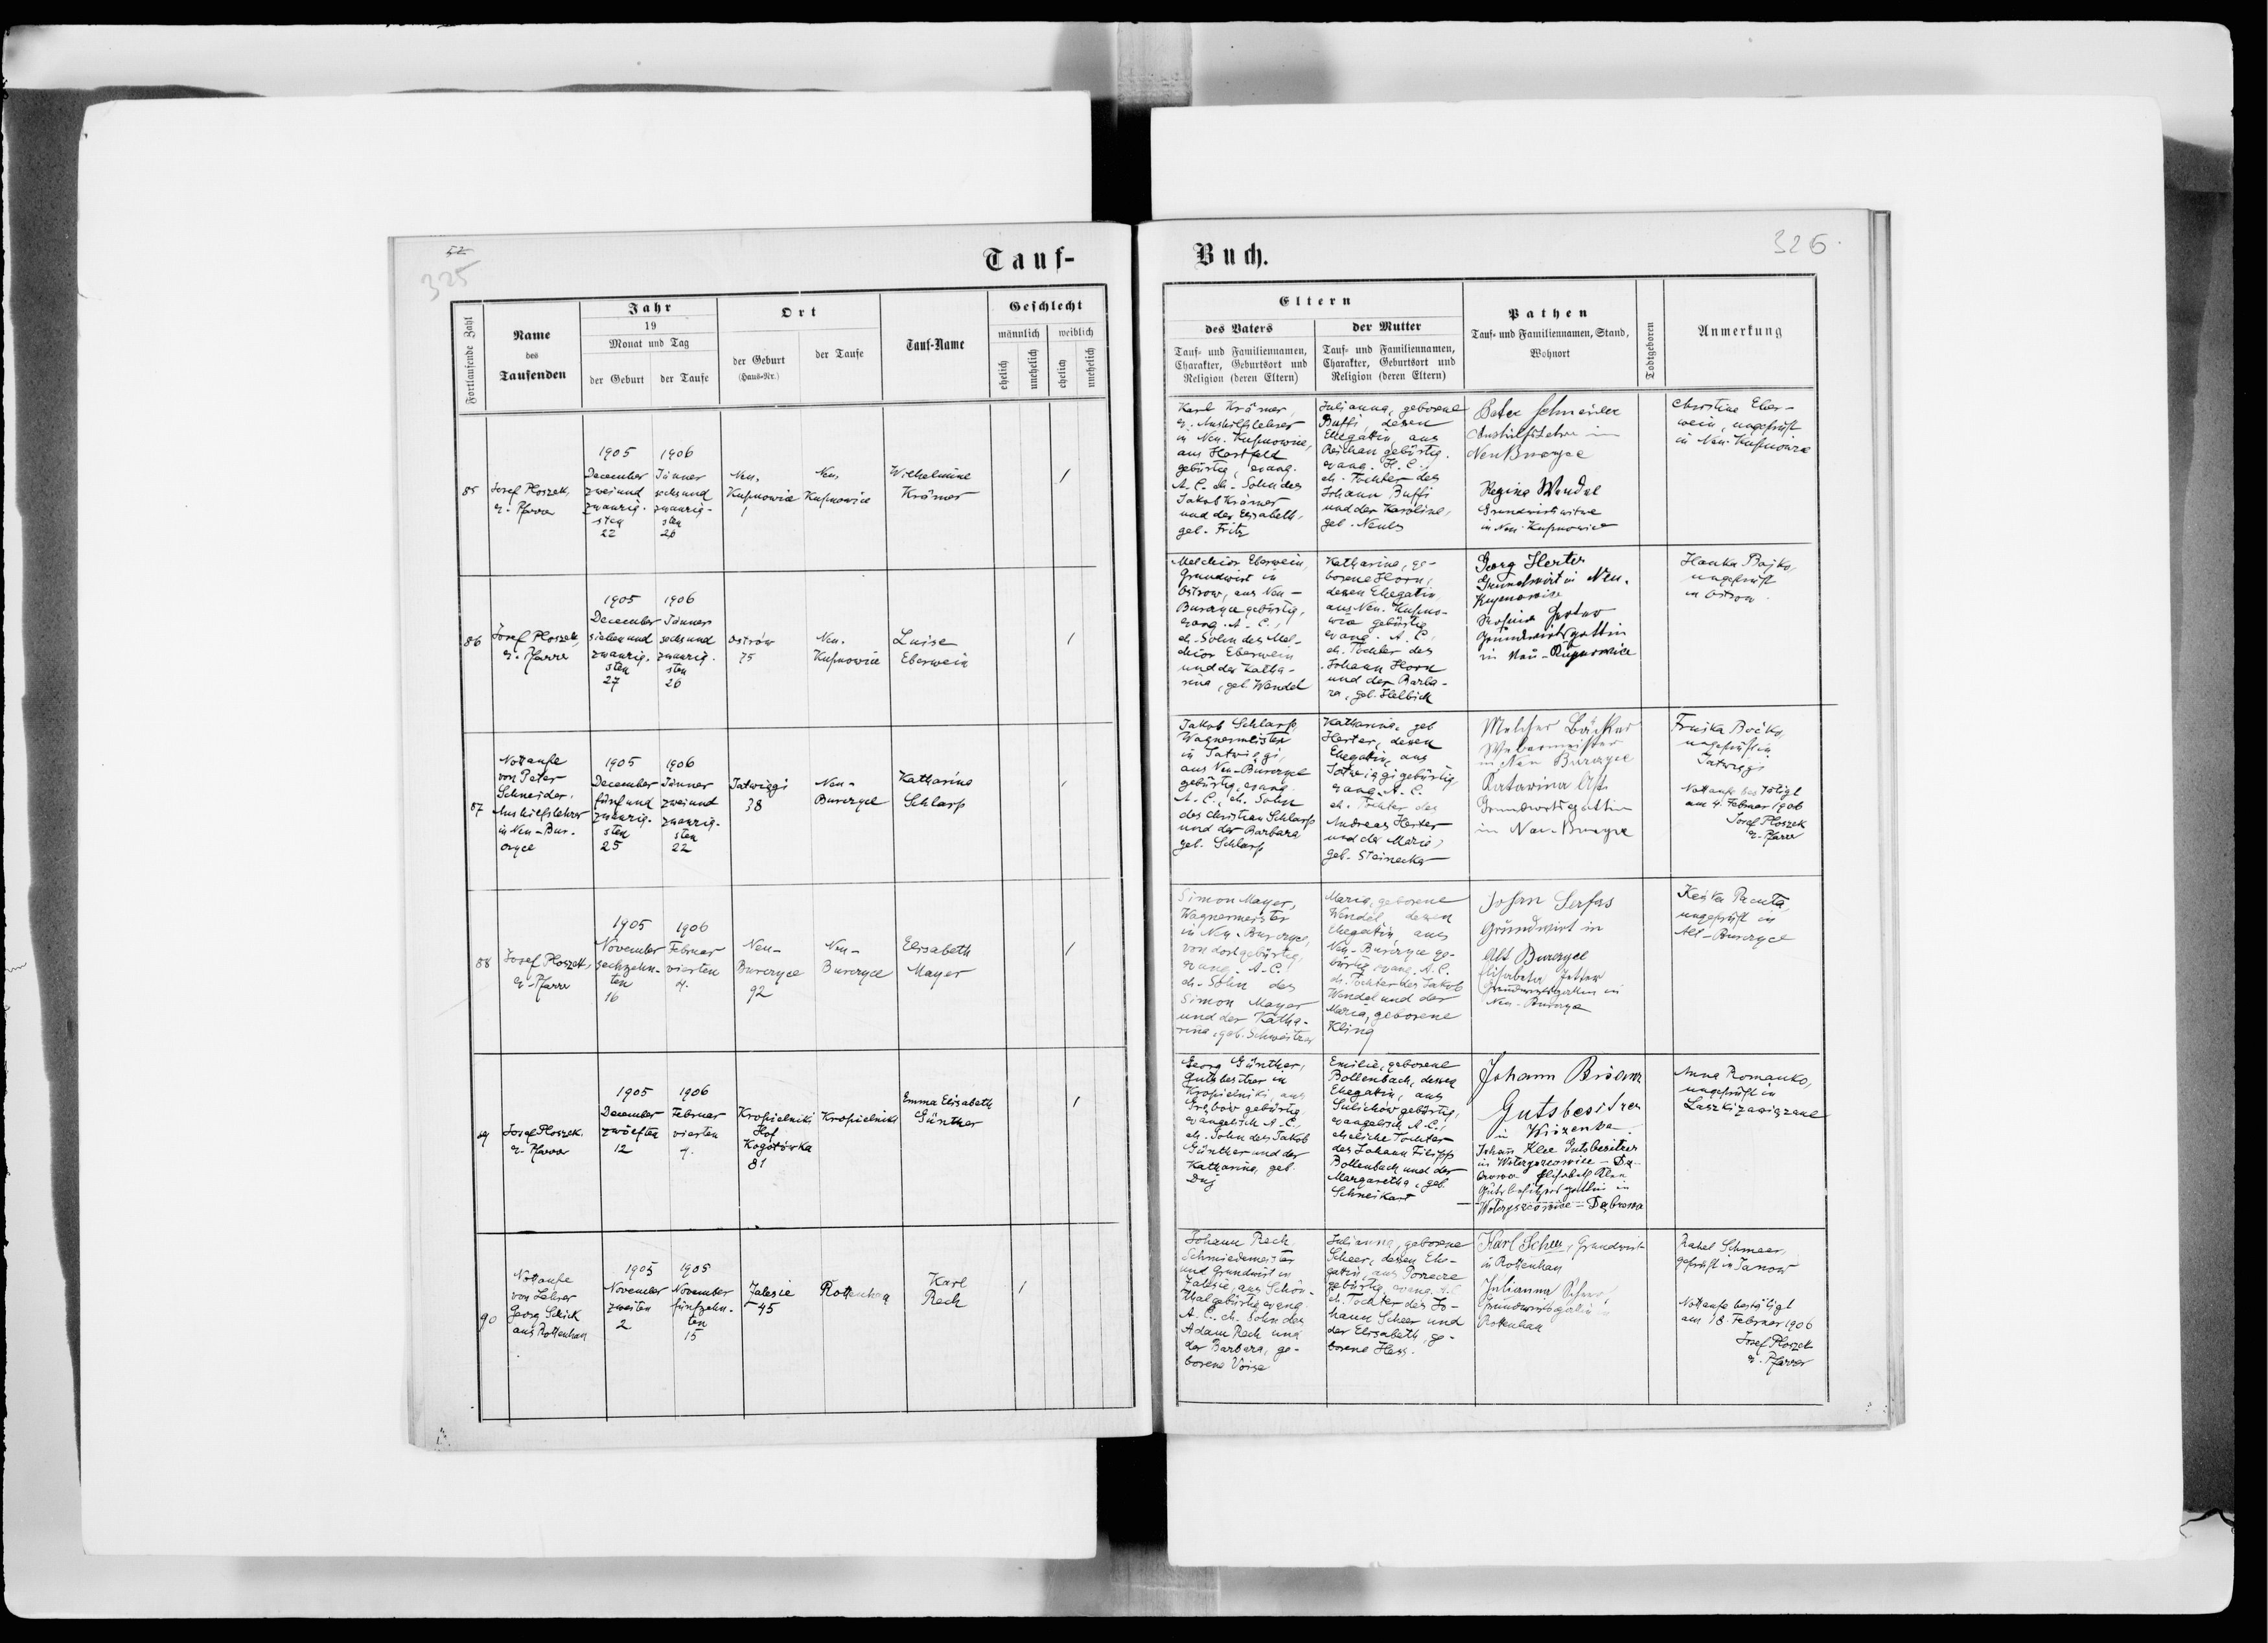 52
325
Tauf-
Buch.
326.
Fortlaufende Zahl
Name
des
Taufenden
Jahr
19
Monat und Tag
der Geburt
der Taufe
Ort
der Geburt
(Haus-Nr.)
der Taufe
Tauf-Name
Geschlecht
männlich
weiblich
ehelich
unehelich
ehelich
unehelich
Eltern
des Vaters
Tauf- und Familiennamen,
Charakter, Geburtsort und
Religion (deren Eltern)
der Mutter
Tauf- und Familiennamen,
Charakter, Geburtsort und
Religion (deren Eltern)
Pathen
Tauf- und Familiennamen, Stand,
Wohnort
Todtgeboren
Anmerkung
85
Josef Ploszek,
ev. Pfarrer
1905
December
zweiund
zwanzig-
sten
22
1906
Jänner
sechsund
zwanzig-
sten
26
Neu-
Kupnowice
1
Neu-
Kupnowice
Wilhelmine
Krämer
1
Karl Krämer,
ev. Aushilfslehrer
in Neu-Kupnowice,
aus Hartfeld
gebürtig, evang.
A. C. eh. Sohn des
Jakob Krämer
und der Elisabeth,
geb. Fritz
Julianna, geborene
Buffi, dessen
Ehegattin, aus
Reichau gebürtig,
evang. H. C.,
eh. Tochter des
Johann Buffi
und der Karoline,
Peter Schneider
Aushilfslehrer in
Neu Burczyce
Regina Wendel
Grundwirtswitwe
in Neu-Kupnowice
Christine Eber-
wein, ungeprüft
in Neu-Kupnowice
86
Josef Ploszek,
ev. Pfarrer
1905
December
siebenund
zwanzig-
sten
27
1906
Jänner
sechsund
zwanzig-
sten
26
Ostrów
75
Neu-
Kupnowice
Luise
Eberwein
1
Melchior Eberwein,
Grundwirt in
Ostrow, aus Neu-
Burczyce gebürtig,
evang. A. C.,
eh. Sohn des Mel-
chior Eberwein
und der Katha-
rina, geb. Wendel
Katharina, ge-
borene Horn,
dessen Ehegattin,
aus Neu-Kupno-
wice gebürtig
evang. A. C.,
eh. Tochter des
Johann Horn
und der Barba-
ra, geb. Helbich
Georg Herter
Grundwirt in Neu-
Kupnowice
Grundwirtsgattin
in Neu-Kupnowice
Hanka Bojko,
ungeprüft
in Ostrow
87
Nottaufe
von Peter
Schneider,
Aushilfslehrer
in Neu-Bur-
czyce
1905
December
fünfund
zwanzig-
sten
25
1906
Jänner
zweiund
zwanzig-
sten
22
Tatwiggi
38
Neu-
Burczyce
Katharina
Schlarp
1
Jakob Schlarp,
Wagnermeister
in Tatwiggi,
aus Neu-Burczyce
gebürtig, evang.
A. C., eh. Sohn
des Christian Schlarp
und der Barbara
geb. Schlarp
Katharina, geb.
Herter, dessen
Ehegattin, aus
Tatwiggi gebürtig,
evang. A. C.
eh. Tochter des
Andreas Herter
und der Maria,
geb. Steinecker
Webermeister
in Neu Burczyce
Katarina
Grundwirtsgattin
in Neu-Burczyce
ungeprüft in
Tatwiggi
Nottaufe bestätigt
am 4. Februar 1906
Josef Ploszek
ev. Pfarrer
88
Josef Ploszek,
ev. Pfarrer
1905
November
sechzehn-
ten
16
1906
Februar
vierten
4.
Neu-
Burczyce
92
Neu-
Burczyce
Elisabeth
Mayer
1
Simon Mayer,
Wagnermeister
in Neu-Burczyce,
von dort gebürtig,
evang. A. C.,
eh. Sohn des
Simon Mayer
und der Katha-
rina, geb. Schweitzer
Maria, geborene
Wendel, dessen
Ehegattin, aus
Neu-Burczyce ge-
bürtig evang. A. C.
eh. Tochter des Jakob
Wendel und der
Maria, geborene
Kling
Johan Serfas
Grundwirt in
Alt Burczyce
Elisabeta
Grundwirtsgattin in
Neu-Burczyce
ungeprüft in
Alt-Burczyce
89
Josef Ploszek,
ev. Pfarrer
1905
December
zwölften
12
1906
Februar
vierten
4.
Kropielniki
Hof
81
Kropielniki
Emma Elisabeth
Günther
1
Georg Günther,
Gutsbesitzer in
Kropielniki, aus
gebürtig,
evangelisch A. C.,
eh. Sohn des Jakob
Günther und der
Katharina, geb.
Emilie, geborene
Bollenbach, dessen
Ehegattin, aus
Sulichów gebürtig,
evangelisch A. C.,
eheliche Tochter
des Johann Filipp
Bollenbach und der
Margaretha, geb.
Johann
Gutsbesitzer
in
Johann Klee Gutsbesitzer
Elisabeth Klee
Gutsbesitzersgattin in
Anna Romanko,
ungeprüft in
90
Nottaufe
von Lehrer
Georg Schick
aus Rottenhan
1905
November
zweiten
2
1905
November
fünfzehn-
ten
15
Zalesie
45
Rottenhan
Karl
Rech
1
Johann Rech
Schmiedemeister
und Grundwirt in
Zalesie, aus Schön-
thal gebürtig evang.
A. C., eh. Sohn des
Adam Rech und
der Barbara, ge-
borene
Julianna, geborene
Scheer, dessen Ehe-
gattin, aus Porzecze
gebürtig, evang. A. C.
eh. Tochter des Jo-
hann Scheer und
der Elisabeth, ge-
borene Hess.
Karl Scheer, Grundwirt
in Rottenhan
Julianna Scheer,
Grundwirtsgattin
Rottenhan
Rahel Schmeer,
geprüft in Janow
Nottaufe bestätigt
am 18. Februar 1906
Josef Ploszek
ev. Pfarrer